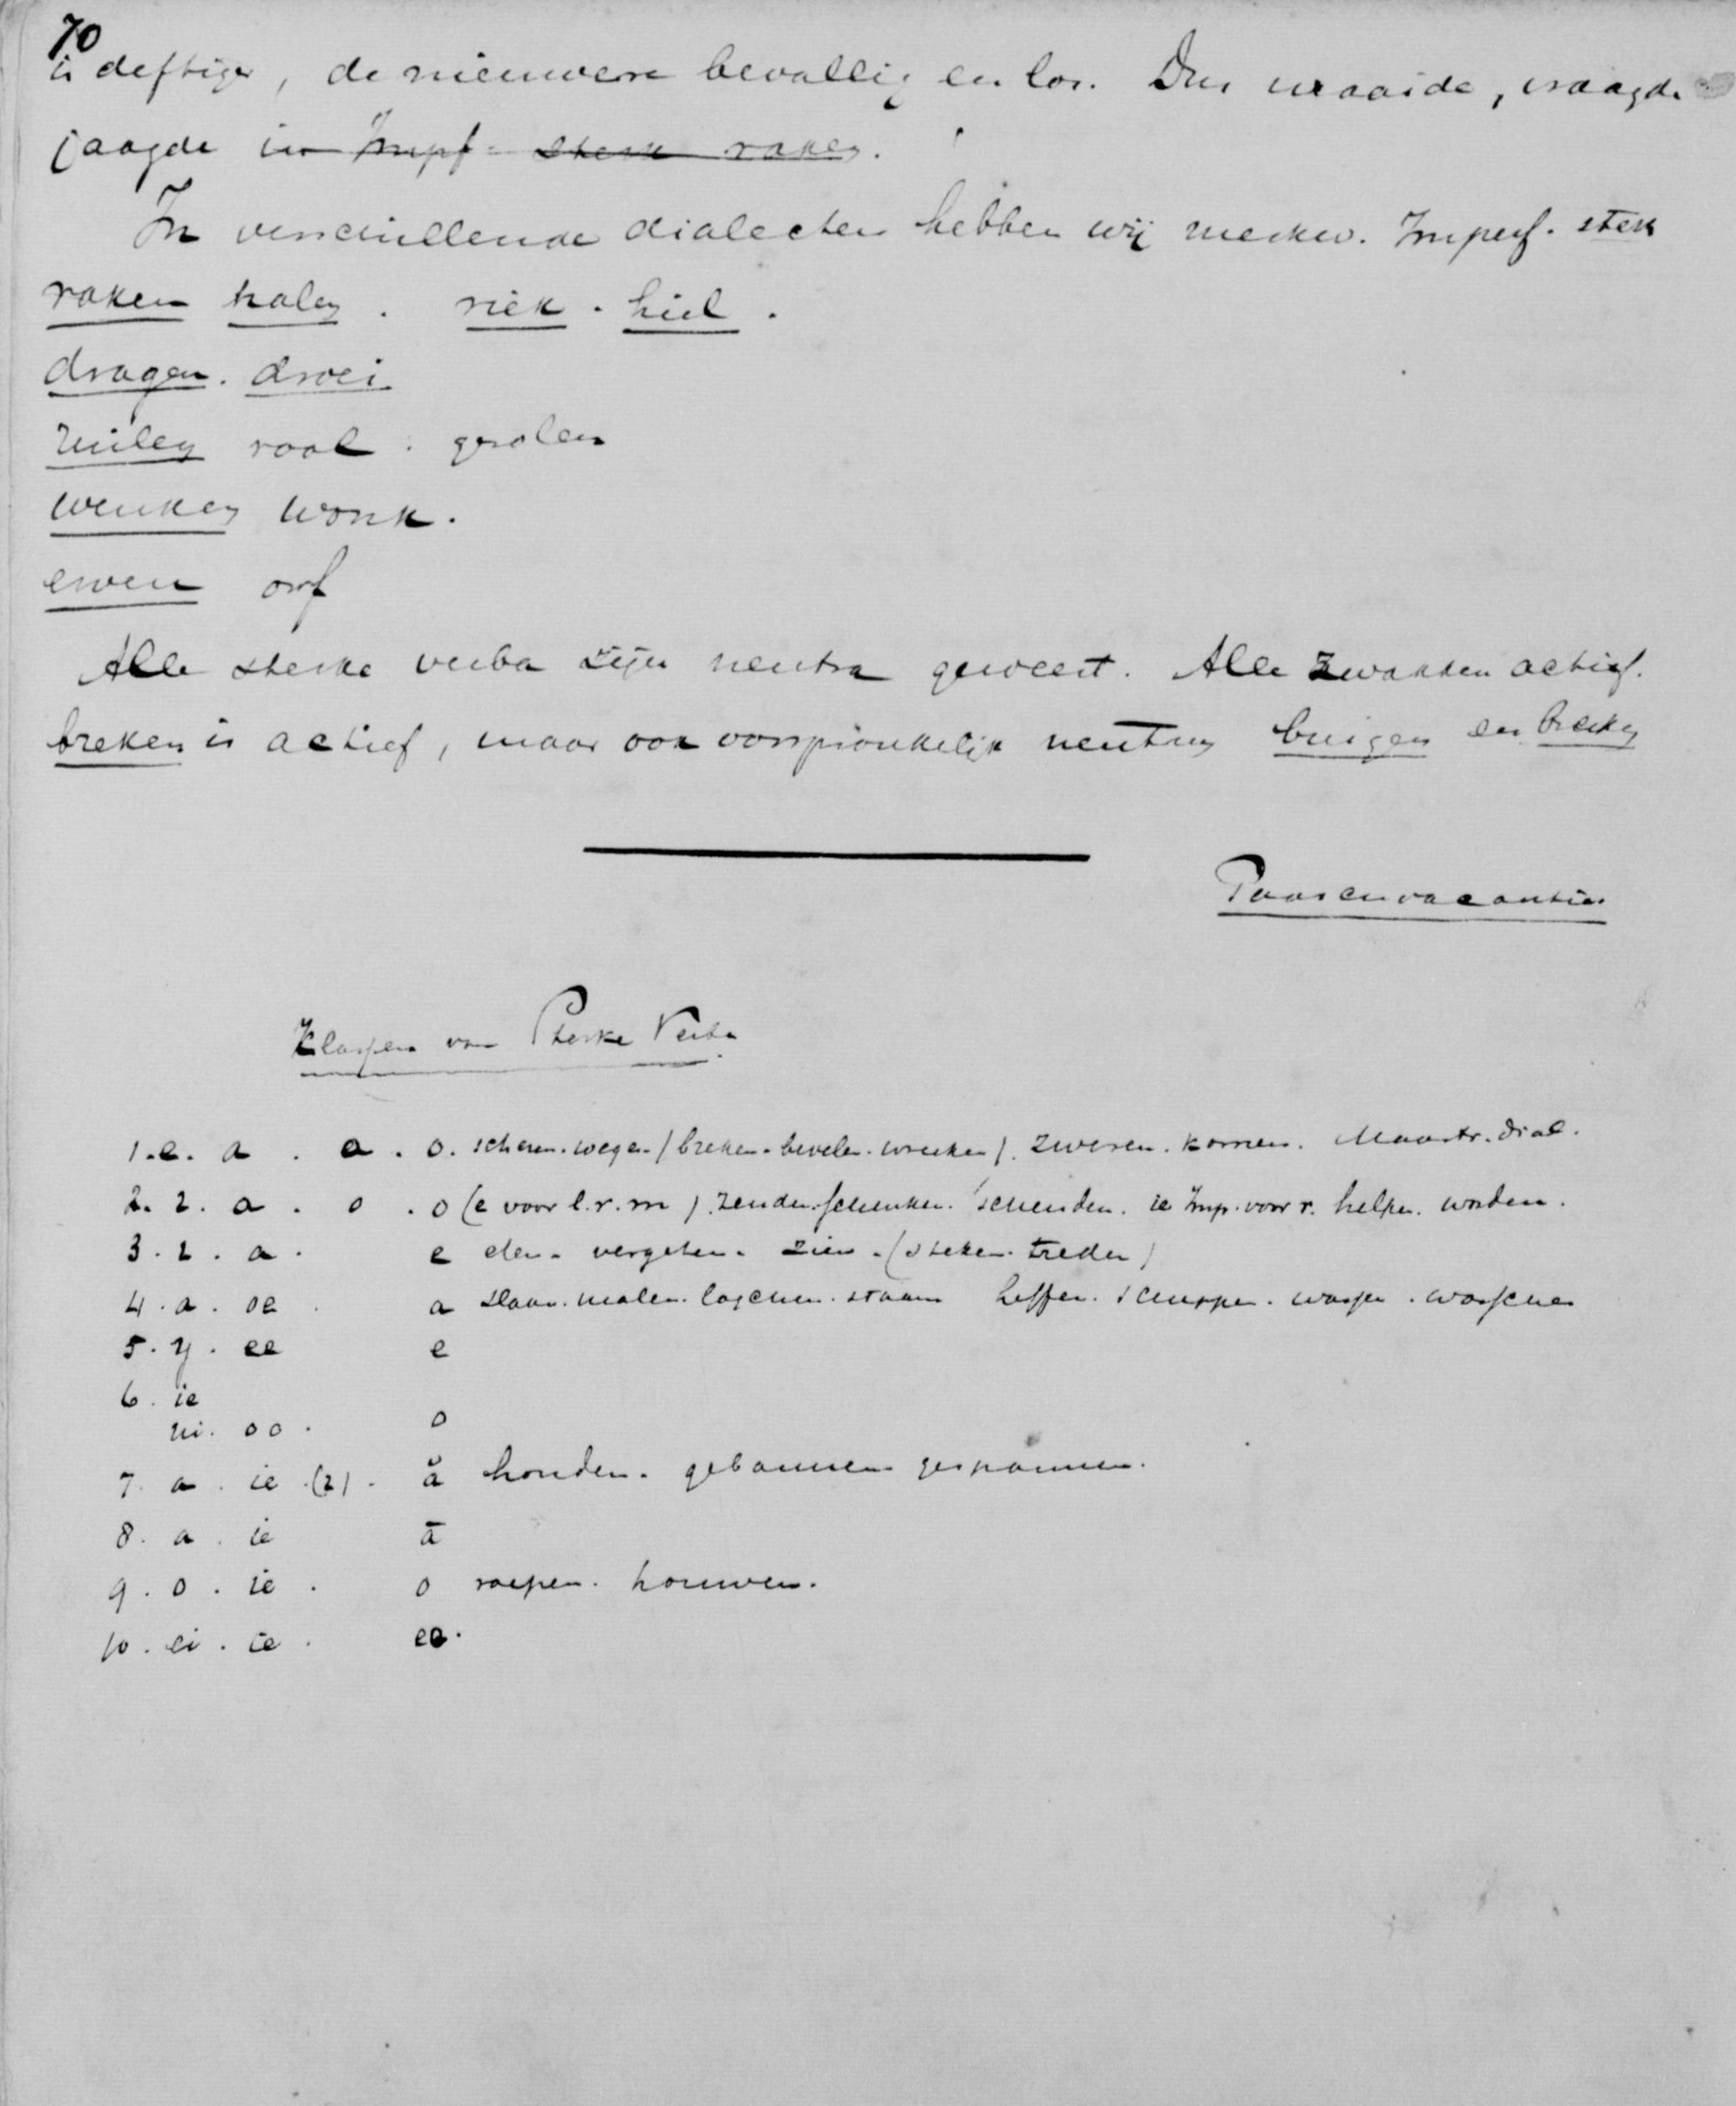 70
is deftiger, de nieuwere bevallig en los. Dus waaide, vraagde
jaagde in Impf. sterk raken.
In verschillende dialecten hebben wij merkw. Imperf. sterk
raken halen. riek. hiel.
dragen. droei
ruilen rool. gerolen
wenken wonk.
erven orf
Alle sterke verba zijn neutra geweest. Alle zwakken actief.
breken is actief, maar ook oorspronkelijk neutrum buigen en breken
Paaschvacantie
Klassen van Sterke Verba
1. e. a. a. o. scheren. wegen (breken. bevelen. wreken). zweren. komen. Maastr. dial.
2. i. a. o. o (e voor l. r. m) zenden. schenken. schenden. ie Imp. voor r. helpen. worden.
3. i. a. e eten. vergeten. zien. (steken. treden)
4. a. oe. a slaan. malen. lachen. staan heffen. scheppen. wassen. wasschen
5. y. ee e
6. ie
ui. oo. o
7. a. ie. (i). ă houden. gebannen gespannen.
8. a. ie ā
9. o. ie. o roepen. houwen.
10. ei. ie. ee.